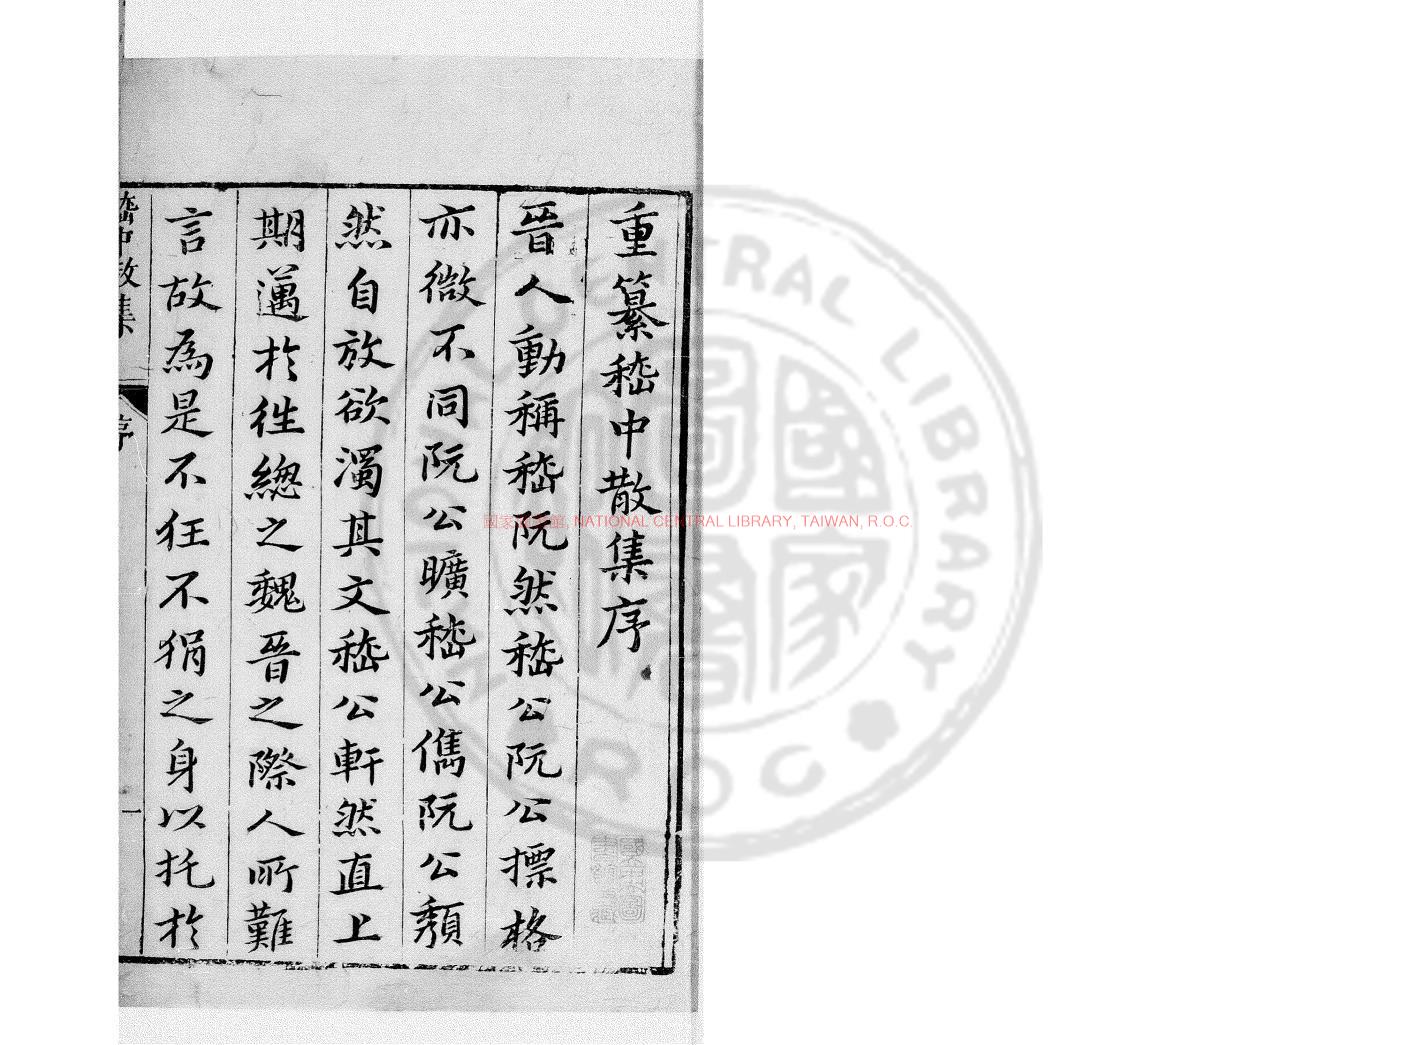 重纂嵇中散集序
晉人動稱嵇阮然嵇公阮公摽格
亦微不同阮公曠嵇公儁阮公頽
然自放欲濁其文嵇公軒然直上
期邁於徃總之魏晉之際人所難
言故為是不狂不狷之身以托於
嵇中散集
序
一
國家圖書館, NATIONAL CENTRAL LIBRARY, TAIWAN, R.O.C.